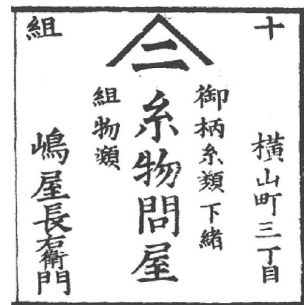 十組
二
横山町三丁目
御柄糸類下緒
糸物問屋
組物類
嶋屋長右衛門